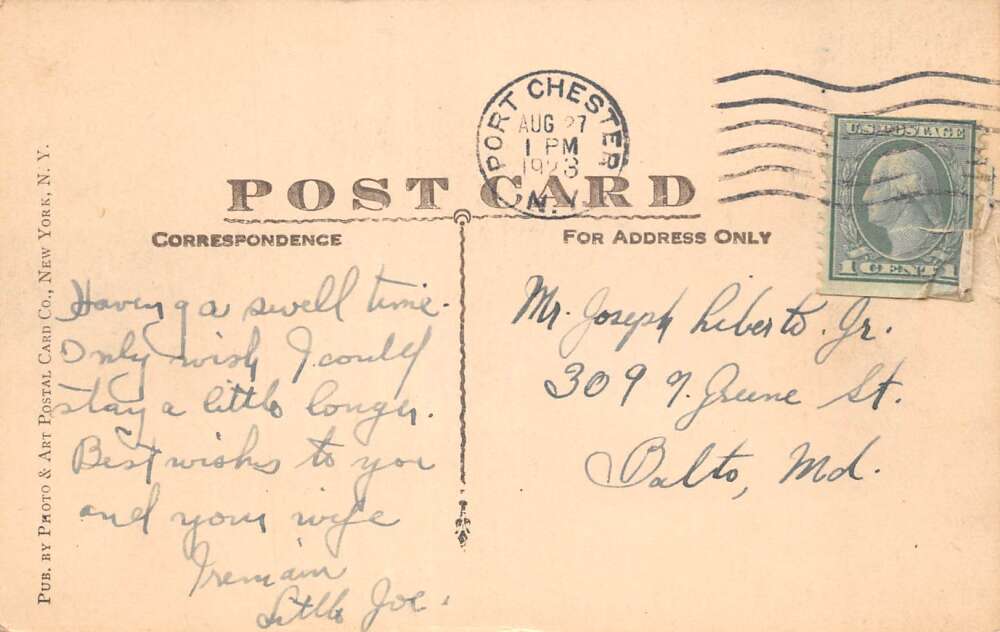 PORT CHESTER
N.Y.
AUG 27
1 PM
1923
U.S. POSTAGE
1 CENT 1
POST CARD
CORRESPONDENCE
FOR ADDRESS ONLY
PUB. BY PHOTO & ART POSTAL CARD CO., NEW YORK, N. Y.
Having a swell time.
Only wish I could
stay a little longer.
Best wishes to you
and your wife
I remain
Little Joe.
Mr. Joseph Liberto. Jr.
309 N. Greene St.
Balto, Md.